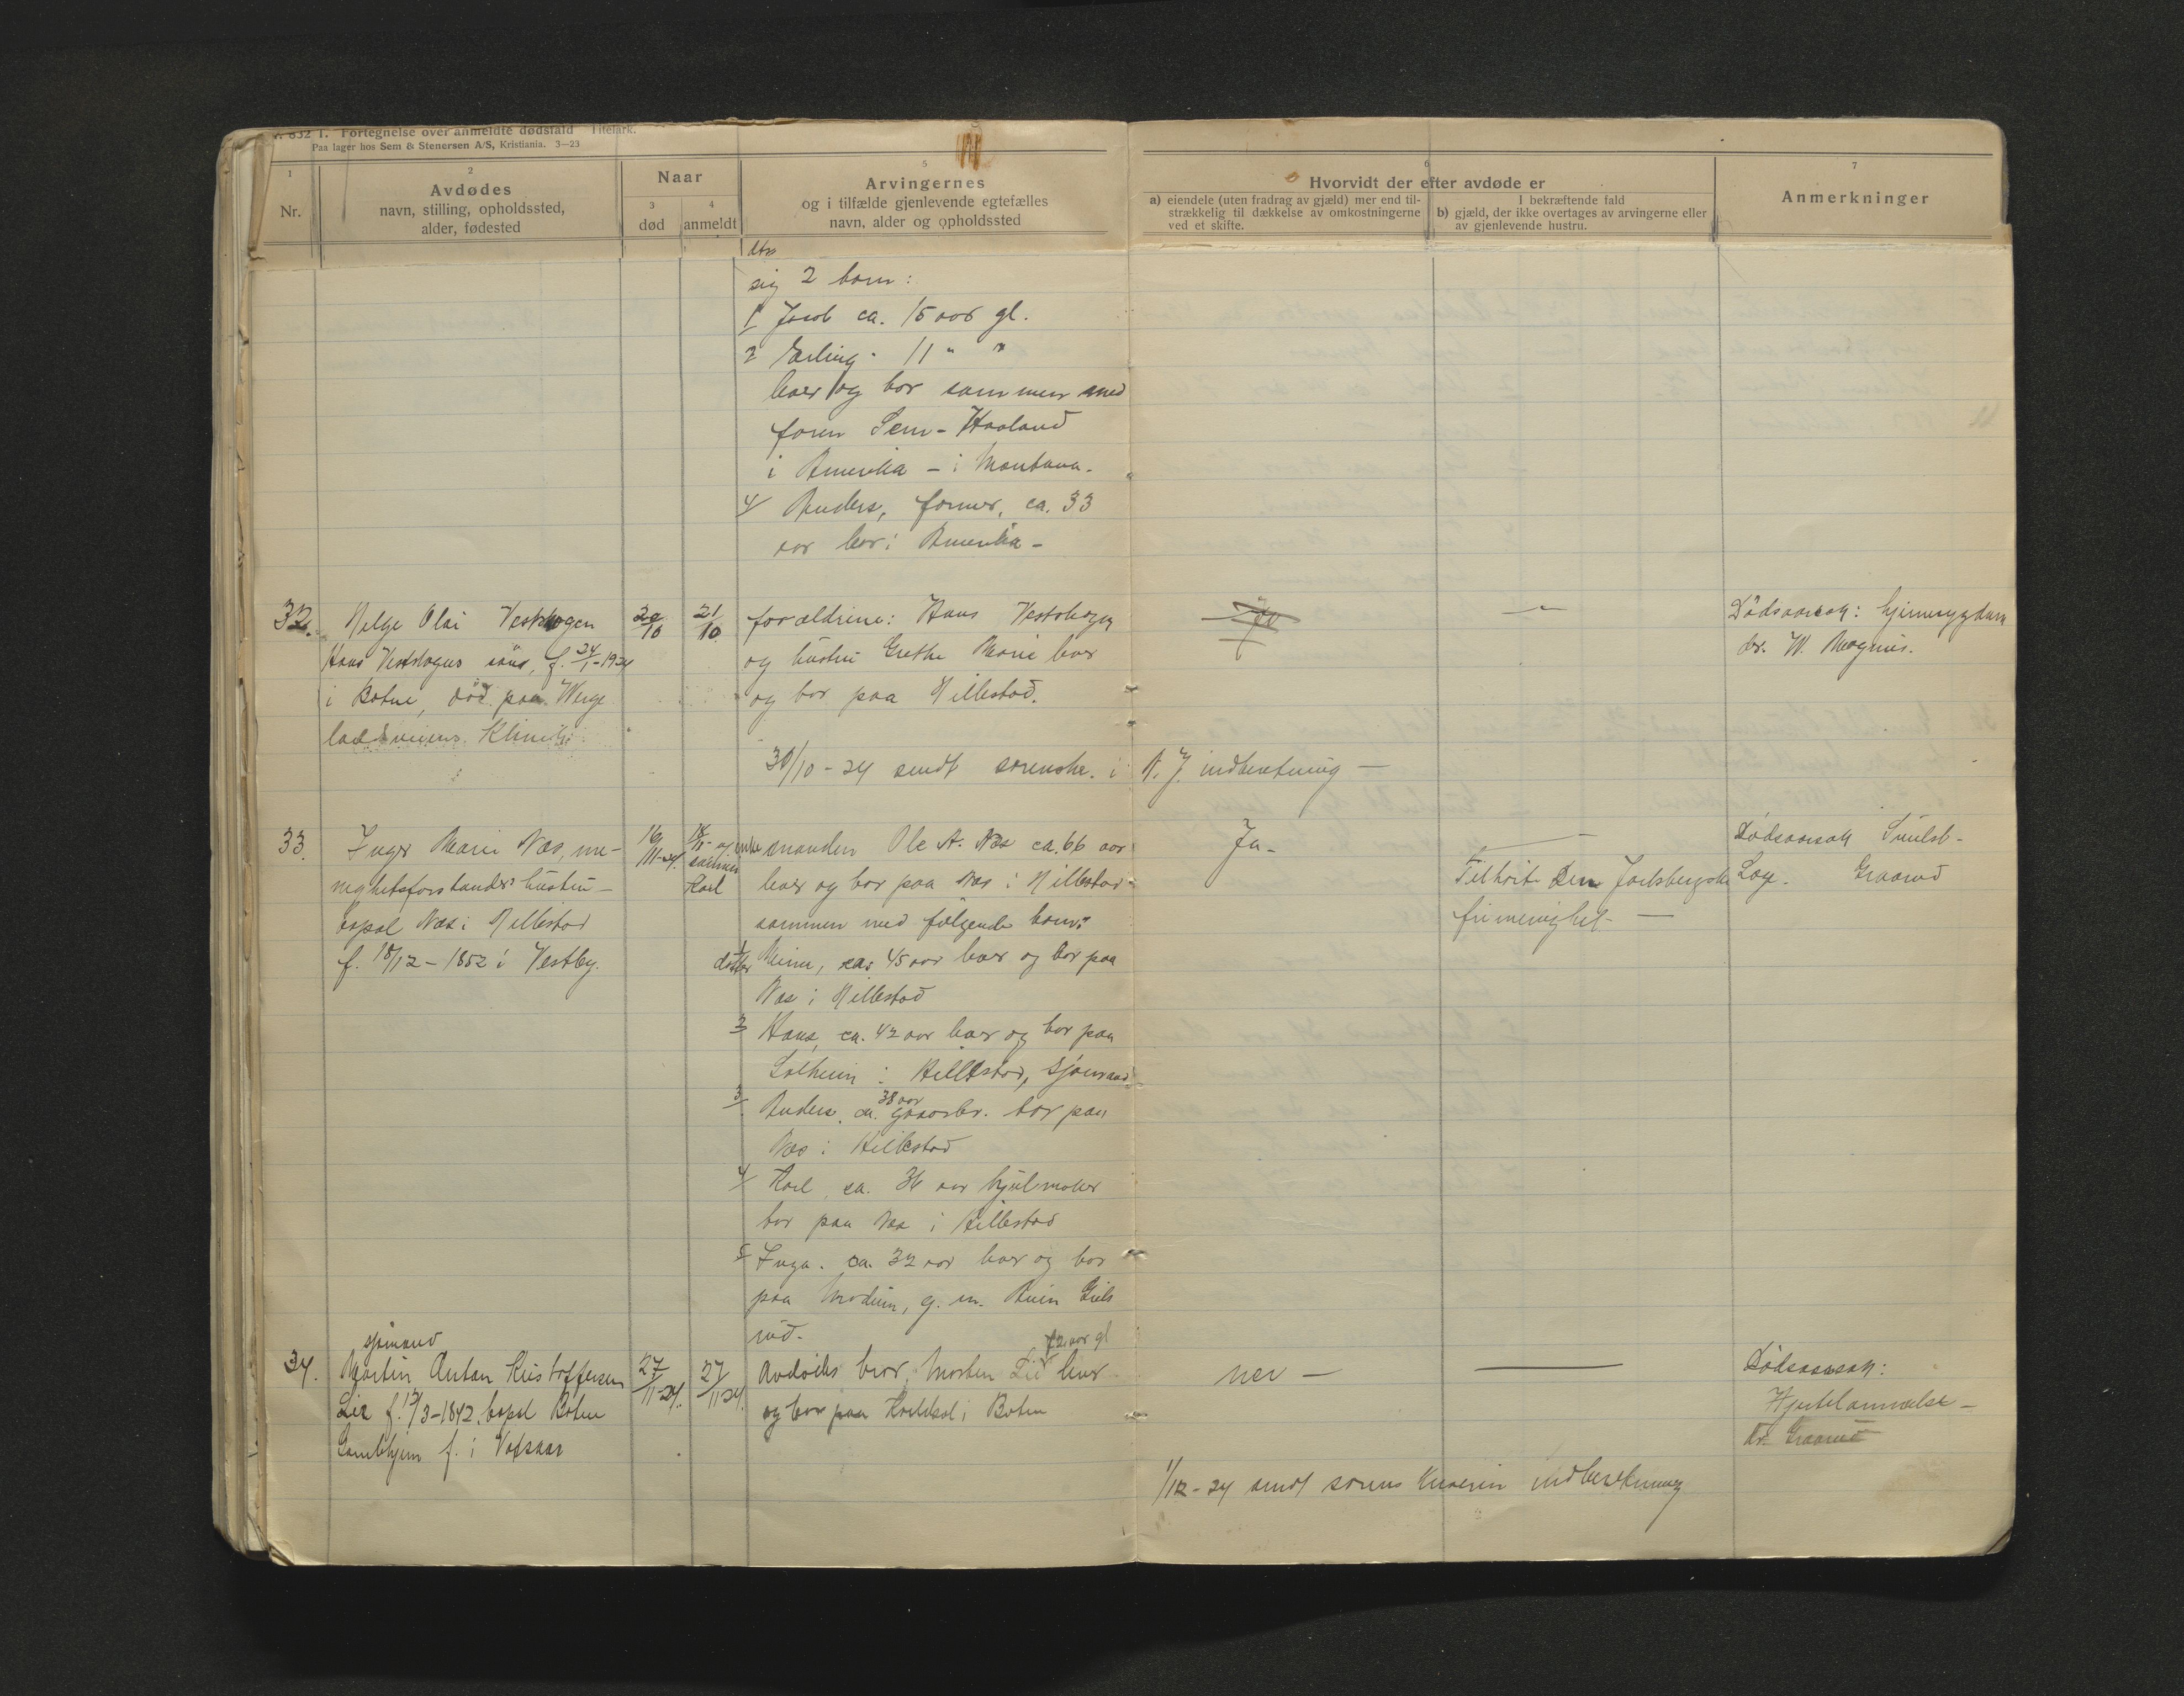 832 1. Fortegnelse over anmeldte dødsfald Titelark.
Paa lager hos Sem & Stenersen A/S, Kristiania. 3—23
1
Nr.
2
Avdødes
navn, stilling, opholdssted,
alder, fødested
Naar
3
død
4
anmeldt
5
Arvingernes
og i tilfælde gjenlevende egtefælles
navn, alder og opholdssted
6
Hvorvidt der efter avdøde er
a) eiendele (uten fradrag av gjæld) mer end til-
strækkelig til dækkelse av omkostningerne
ved et skifte.
I bekræftende fald
b) gjæld, der ikke overtages av arvingerne eller
av gjenlevende hustru.
7
Anmerkninger
sig 2 barn:
1 Jacob ca. 15 aar gl.
2 Erling " 11 " "
lever og bor sammen med
faren Sem-Haaland
i Amerika - i Montana.
4/ Anders, farmer, ca. 33
aar bor i Amerika -
32.
Helge Olai Vestskogen
Hans Vestskogens søns, f. 24/1-1924
i Botne, død paa Werge
landsveiens Klinik.
20/10
21/10
forældrene: Hans Vestskogen
og hustru Grethe Marie lever
og bor paa Hillestad.
Dødsaarsak: hjernesygdom
dr. W. Magnus.
30/10-24 sendt sorenskr. i N. J. indberetning —
33.
Inger Marie Næs, me-
nighetsforstanders hustru -
bopæl Næs i Hillestad
f. 18/12-1852 i Vestby.
16/11-24.
18/11-
Karl
enkemanden Ole A. Næs ca. 66 aar
lever og bor paa Næs i Hillestad
sammen med følgende barn:
1 datter ca. 45 aar lever og bor paa
Næs i Hillestad
2 Hans, ca. 42 aar lever og bor paa
Solheim i Hillestad, sjømand
3/ Anders, ca. 38 aar gaardbr. bor paa
Næs i Hillestad
4/ Karl, ca. 36 aar hjulmaker
bor paa Næs i Hillestad
5 Inga. ca. 32 aar lever og bor
paa Modum, g. m.
rud.
Ja -
Tilhørte Den Jarlsbergske
frimenighet —
Dødsaarsak
Læge Graarud
34.
sjømand
Martin Anton Kristoffersen
Lie f. /3-1842, bopæl Botne
Gamlehjem f. i
27/11-24.
27/11-24.
72 aar gl
Avdødes bror, Morten Lie lever
og bor paa i Botne
nei -
Dødsaarsak:
Hjertelammelse -
dr. Graarud
1/12-24 sendt sorenskriveren indberetning